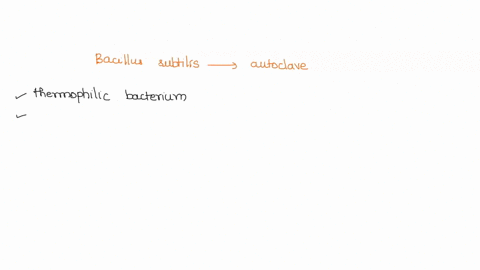 Bacillus subtilis → autoclave
✓ thermophilic bacterium
✓